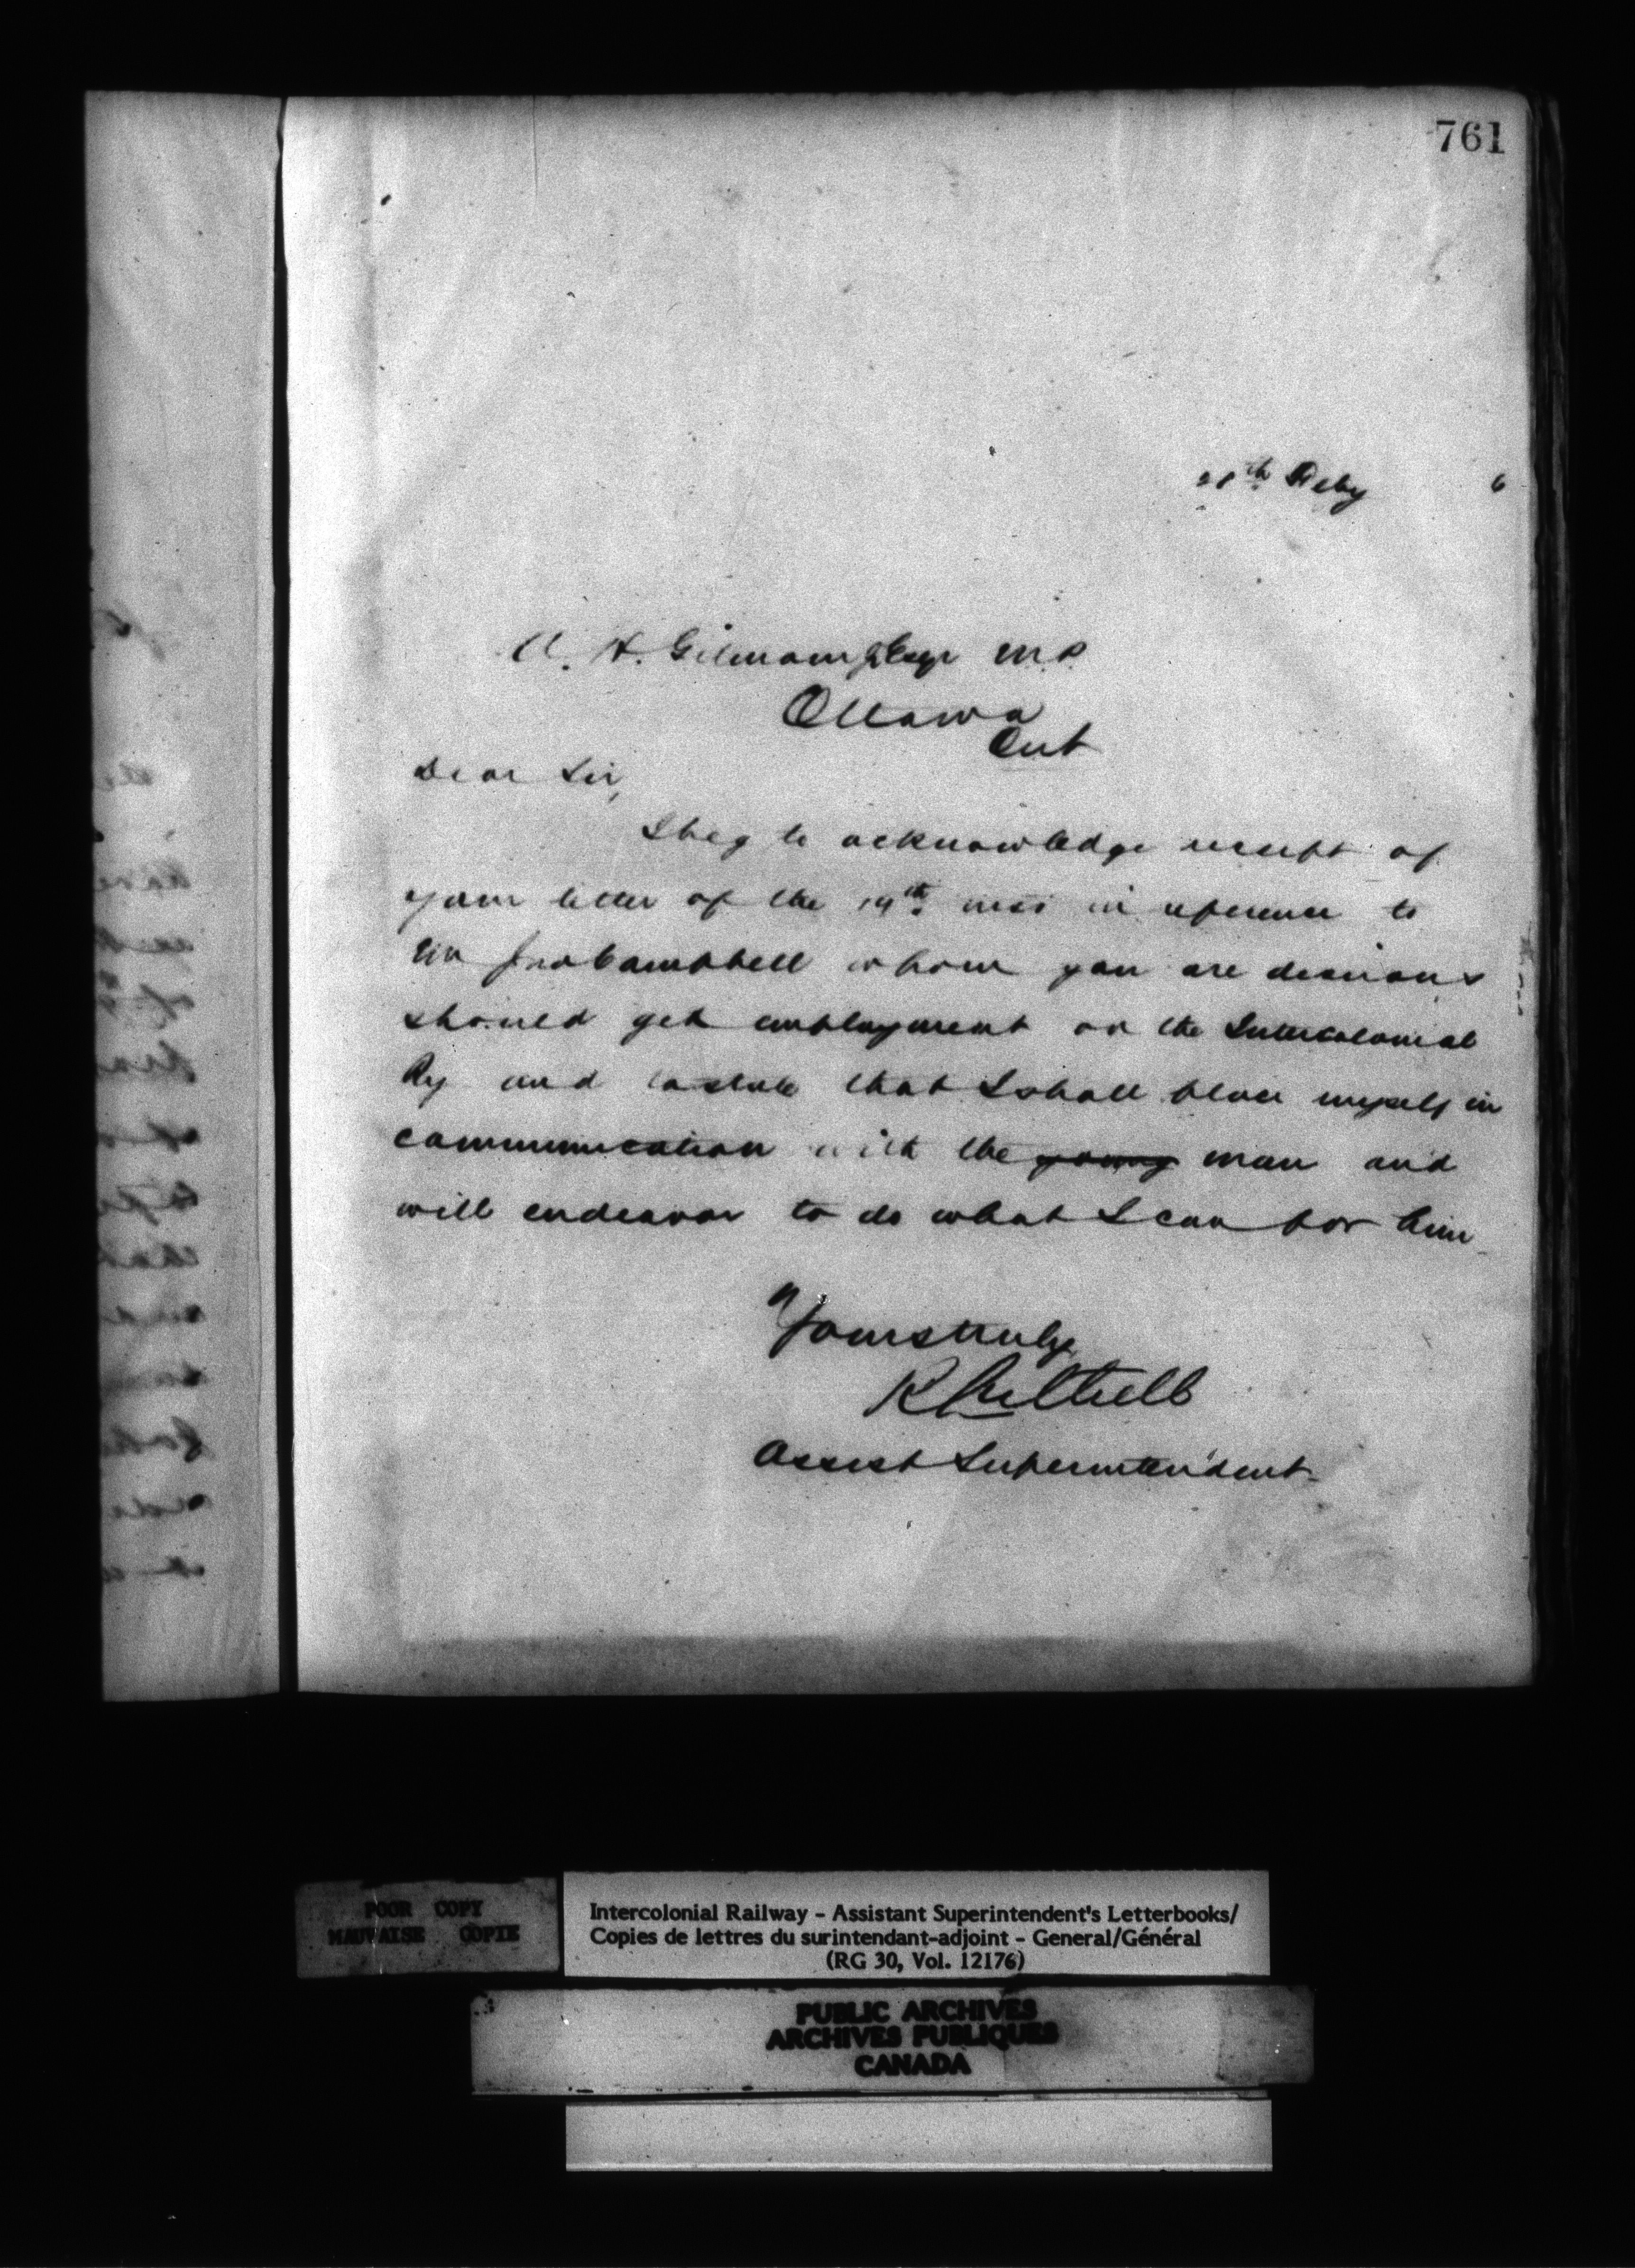 761
28th Feby 6
A. H. Gilmour Esqr M.P.
Ottawa
Ont
Dear Sir,
I beg to acknowledge receipt of
your letter of the 19th inst in reference to
Mr Jno Campbell whom you are desirous
should get employment on the Intercolonial
Ry and to state that I shall place myself in
communication with the young man and
will endeavor to do what I can for him
Yours truly
Assist Superintendent
POOR COPY
MAUVAISE COPIE
Intercolonial Railway - Assistant Superintendent's Letterbooks/
Copies de lettres du surintendant-adjoint - General/Général
(RG 30, Vol. 12176)
PUBLIC ARCHIVES
ARCHIVES PUBLIQUES
CANADA